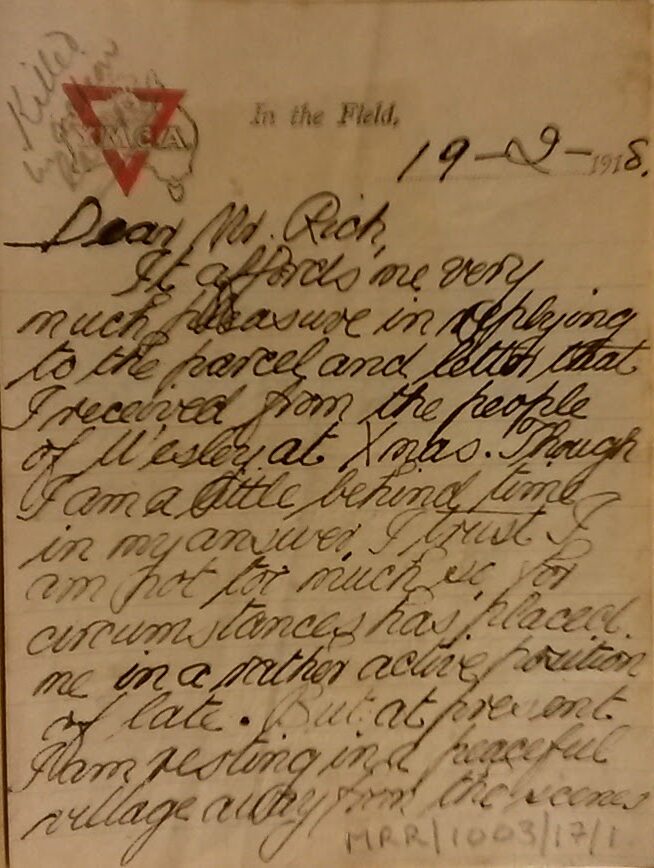 Killed
in action
YMCA
In the Field,
19-2-1918.
Dear Mr. Rich,
It affords me very
much pleasure in replying
to the parcel and letter that
I received from the people
of Wesley at Xmas. Though
I am a little behind time
in my answer I trust I
am not too much so for
circumstances has placed
me in a rather active position
of late. But at present
I am resting in a peaceful
village away from the scenes
MRR/1003/17/1.